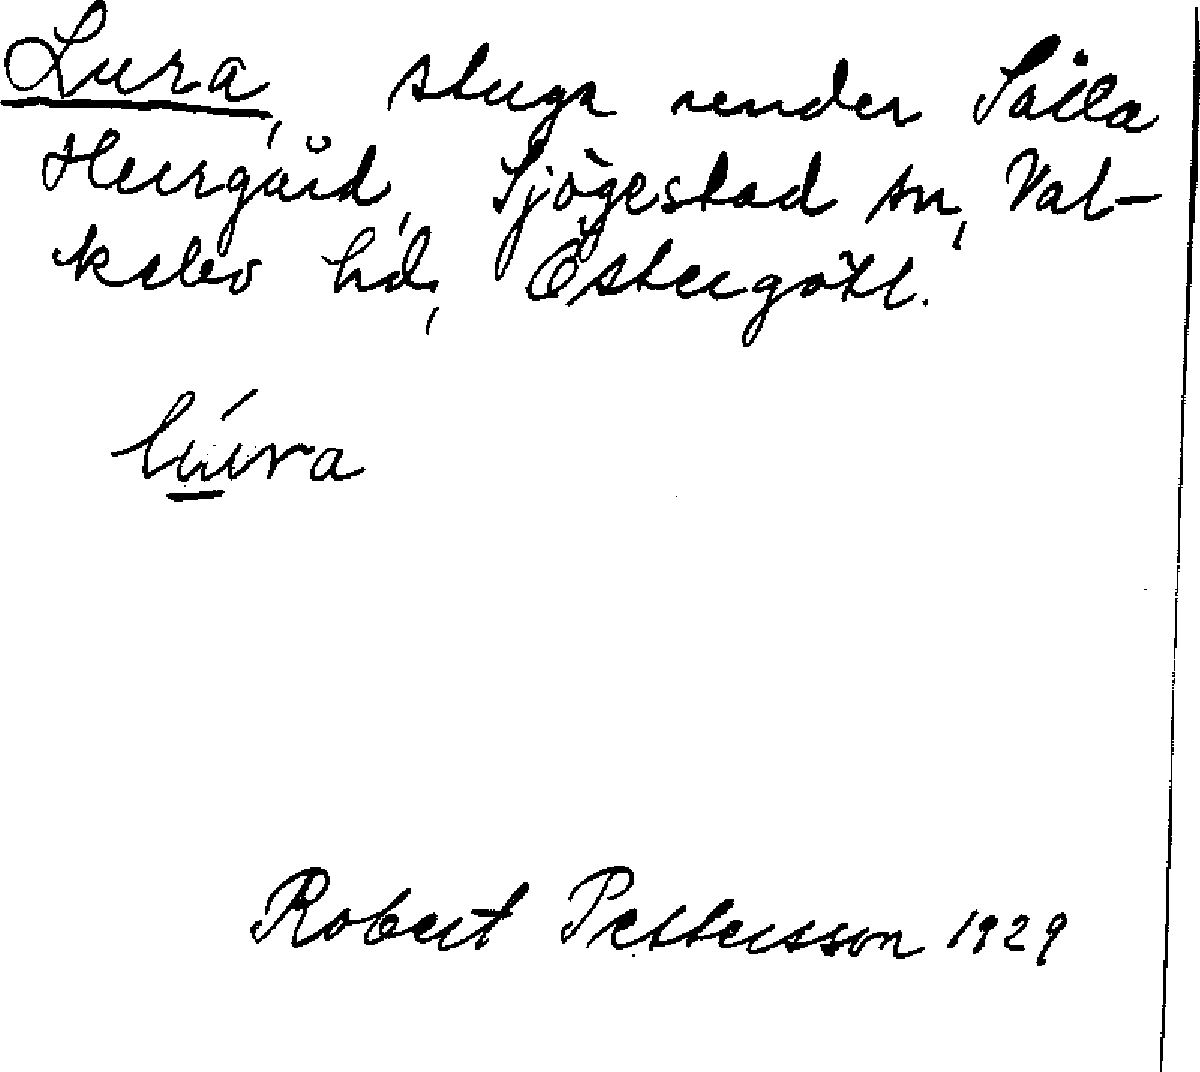 Lura, stuga under Sälla
Herrgård, Sjögestad sn, Val-
kebo hd, Östergötl.
lúura
Robert Pettersson 1929